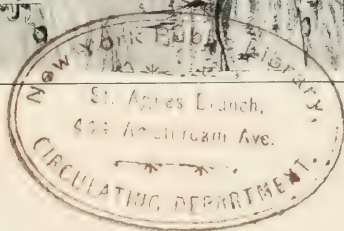 New York Public Library,
St. Agnes Branch,
Amsterdam Ave.
CIRCULATING DEPARTMENT.